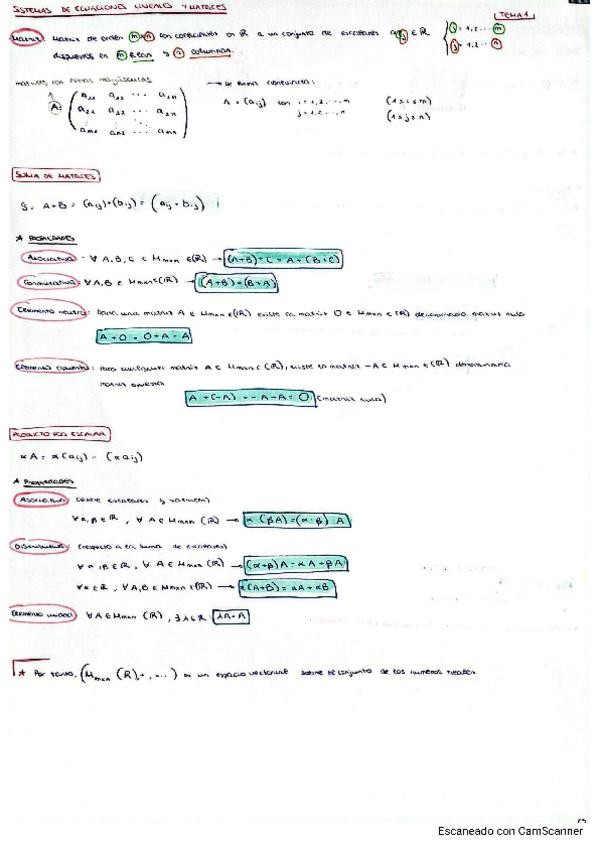 SISTEMAS DE ECUACIONES LINEALES Y MATRICES
TEMA 1
Matriz: Matriz de orden mxn con coeficientes en ℝ a un conjunto de escalares aij ∈ ℝ { i = 1,2,... m
dispuestos en m filas y n columnas. j = 1,2,... n
matrices con letras mayúsculas
→ se suma
A = ( a11 a12 ... a1n
a21 a22 ... a2n
am1 am2 ... amn )
A = (aij) con i = 1,2,...,m (1≤i≤m)
j = 1,2,...,n (1≤j≤n)
SUMA DE MATRICES
A+B = (aij)+(bij) = (aij + bij)
* PROPIEDADES
Asociativa: ∀ A,B,C ∈ Mmxn (ℝ) → (A+B)+C = A+(B+C)
Conmutativa: ∀ A,B ∈ Mmxn (ℝ) → (A+B) = (B+A)
Elemento neutro: Para una matriz A ∈ Mmxn (ℝ) existe la matriz O ∈ Mmxn (ℝ) denominada matriz nula
A+O = O+A = A
Elemento opuesto: Para cualquier matriz A ∈ Mmxn (ℝ), existe la matriz -A ∈ Mmxn (ℝ) denominada
matriz opuesta
A + (-A) = -A+A = O (matriz nula)
PRODUCTO POR ESCALAR
αA = α(aij) = (αaij)
* Propiedades
Asociativa: (entre escalares y matrices)
∀ α,β ∈ ℝ, ∀ A ∈ Mmxn (ℝ) → α(βA) = (α·β) A
Distributiva: (respecto a la suma de escalares)
∀ α,β ∈ ℝ, ∀ A ∈ Mmxn (ℝ) → (α+β)A = αA+βA
∀ α ∈ ℝ, ∀ A,B ∈ Mmxn (ℝ) → α(A+B) = αA+αB
Elemento unidad: ∀ A ∈ Mmxn (ℝ), ∃ 1 ∈ ℝ 1A = A
* Por tanto, (Mmxn (ℝ), +, ...) es un espacio vectorial sobre el conjunto de los números reales.
Escaneado con CamScanner